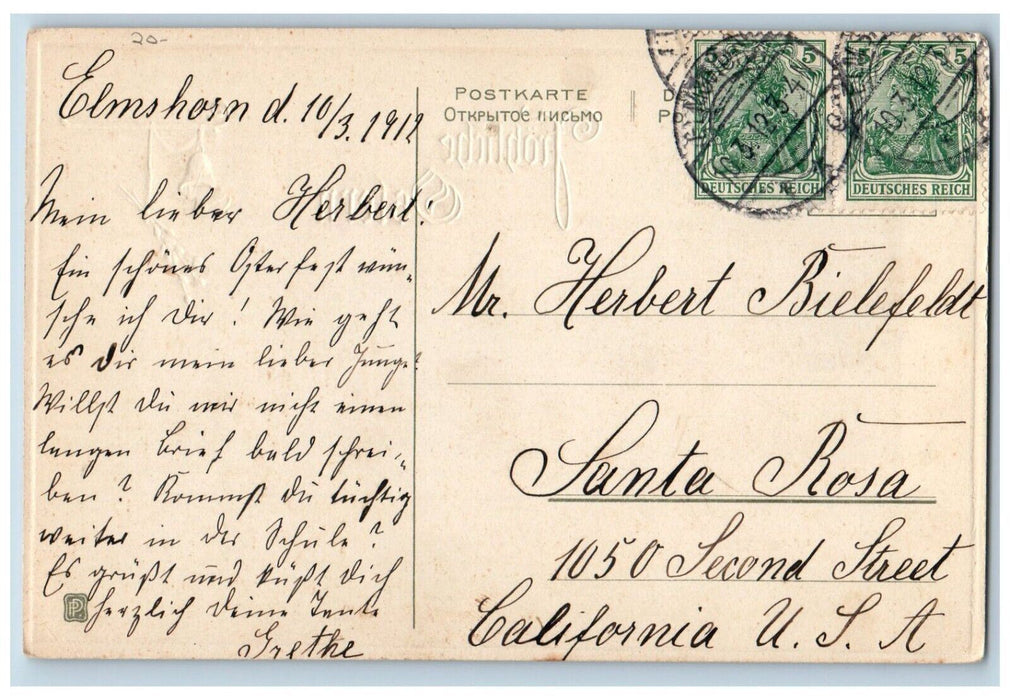 20-
Elmshorn d. 10/3. 1912
Mein lieber Herbert!
Ein schönes Osterfest wün-
sche ich dir! Wie geht
es dir mein lieber Junge?
Willst du mir nicht einen
langen Brief bald schrei-
ben? Kommst du tüchtig
weiter in der Schule?
Es grüßt und küßt dich
herzlich deine Tante
Grethe
PP
POSTKARTE
ОТКРЫТОЕ ПИСЬМО
Fröhliche
Ostern
5
DEUTSCHES REICH
5
DEUTSCHES REICH
10.3.12.
Mr. Herbert Bielefeldt
Santa Rosa
1050 Second Street
California U. S. A